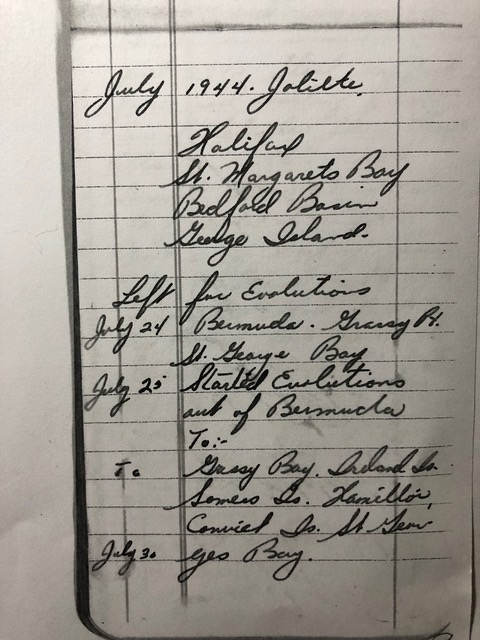 July 1944. Joliette.
Halifax
St. Margarets Bay
Bedford Basin
George Island.
Left for Evolutions
July 24 Bermuda. Grassy Pt.
St. George Bay
July 25 Started Evolutions
out of Bermuda
To:-
To Grassy Bay. Ireland Is.
Somers Is. Hamilton,
Convict Is. St Geor-
July 30 ges Bay.